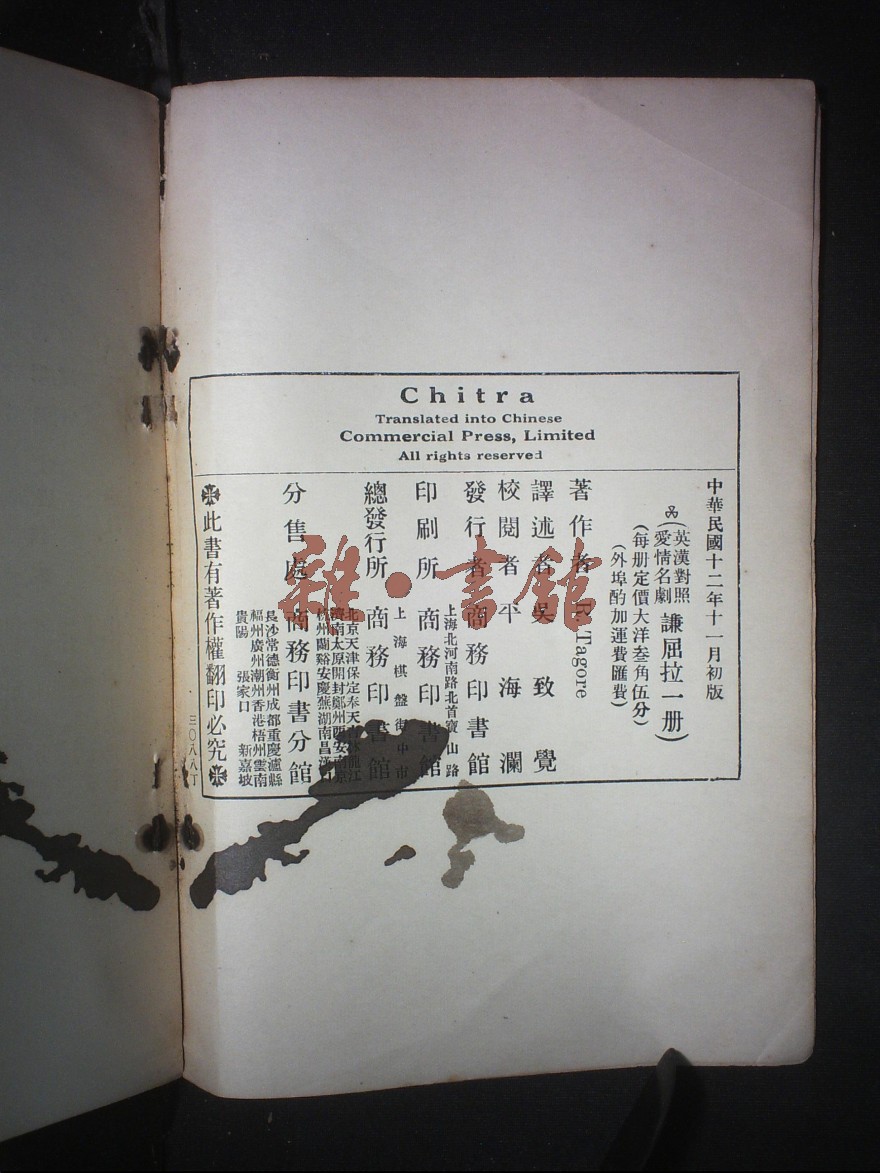 Chitra
Translated into Chinese
Commercial Press, Limited
All rights reserved
中華民國十二年十一月初版
英漢對照
愛情名劇
謙屈拉一册
(每册定價大洋叁角伍分)
(外埠酌加運費匯費)
著作者 R. Tagore
譯述者 吳致覺
校閱者 平海瀾
發行者 商務印書館
上海北河南路北首寶山路
印刷所 商務印書館
上海棋盤街中市
總發行所 商務印書館
北京天津保定奉天吉林龍江
濟南太原開封鄭州西安南京
杭州蘭谿安慶蕪湖南昌漢口
分售處 商務印書分館
長沙常德衡州成都重慶瀘縣
福州廣州潮州香港梧州雲南
貴陽 張家口 新嘉坡
此書有著作權翻印必究
三〇八八丁
雜·書館